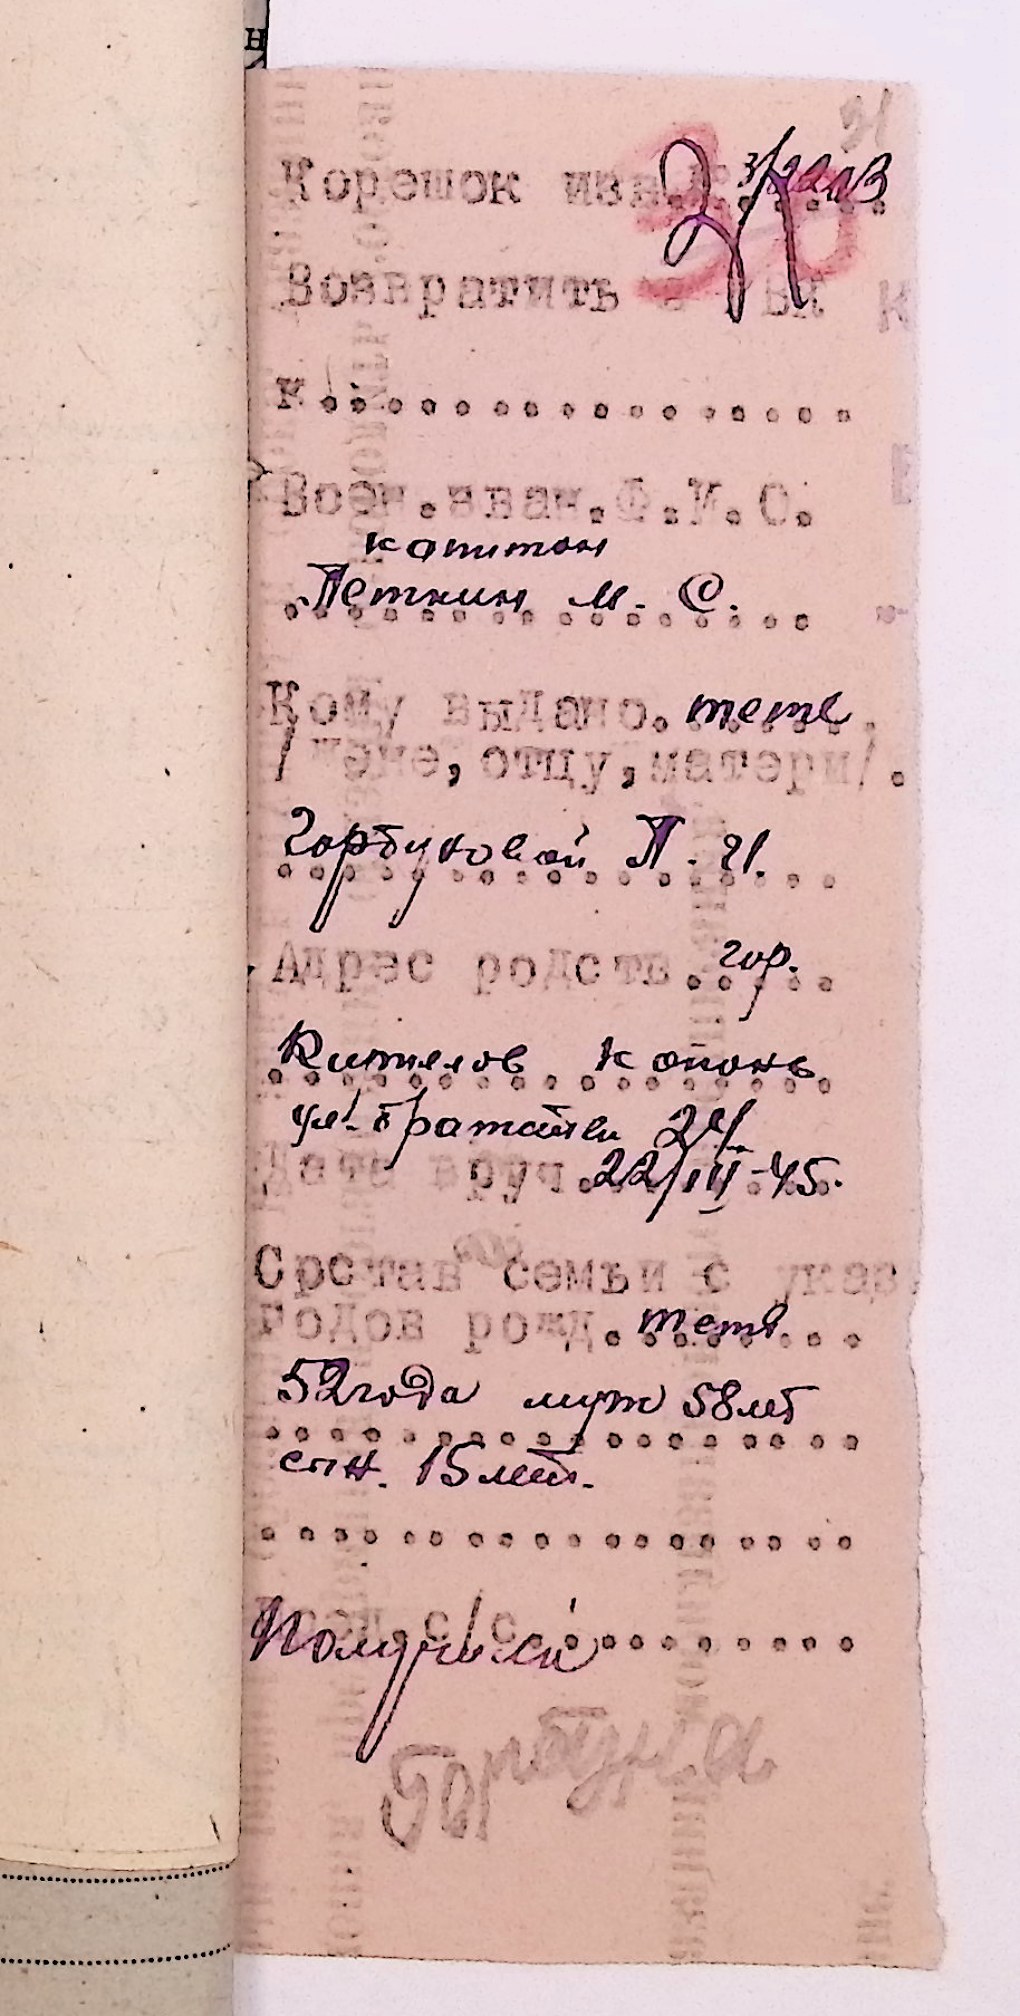 31
Корешок изв. № 3/22ов
Возвратить
к..................
Воен.зван.Ф.И.О.
капитан
Петкин М. С.
Кому выдано. тете
/жене,отцу,матери/.
Горбуновой П. И.
Адрес родств. гор.
ул. 24
Дата вруч. 22/III-45.
Состав семьи с указ.
годов рожд. тетя
52 года муж 58 лет
сын. 15 лет.
Получила